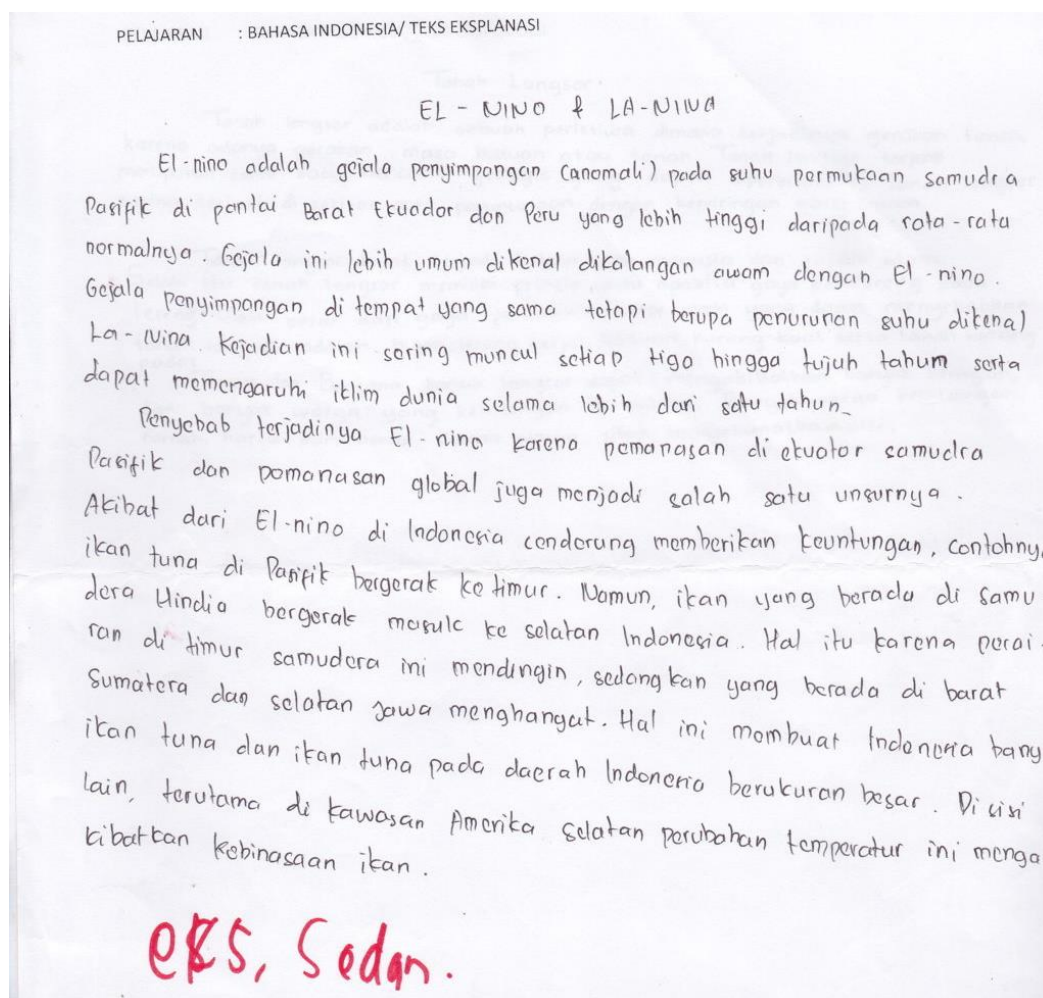 PELAJARAN : BAHASA INDONESIA/ TEKS EKSPLANASI
EL - NINO & LA-NINA
El-nino adalah gejala penyimpangan (anomali) pada suhu permukaan samudra
Pasifik di pantai Barat Ekuador dan Peru yang lebih tinggi daripada rata-rata
normalnya. Gejala ini lebih umum dikenal dikalangan awam dengan El-nino.
Gejala penyimpangan di tempat yang sama tetapi berupa penururan suhu dikenal
La-Nina. Kejadian ini sering muncul setiap tiga hingga tujuh tahum serta
dapat memengaruhi iklim dunia selama lebih dari satu tahun.
Penyebab terjadinya El-nino karena pemanasan di ekuator samudra
Pasifik dan pemanasan global juga menjadi salah satu unsurnya.
Akibat dari El-nino di Indonesia cenderung memberikan keuntungan, contohny
ikan tuna di Pasifik bergerak ke timur. Namun, ikan yang berada di Samu
dera Hindia bergerak masuk ke selatan Indonesia. Hal itu karena perai-
ran di timur samudera ini mendingin, sedangkan yang berada di barat
Sumatera dan selatan Jawa menghangat. Hal ini membuat Indonesia bany
ikan tuna dan ikan tuna pada daerah Indonesia berukuran besar. Di sisi
lain, terutama di kawasan Amerika Selatan perubahan temperatur ini menga
kibatkan kebinasaan ikan.
eks, Sedan.